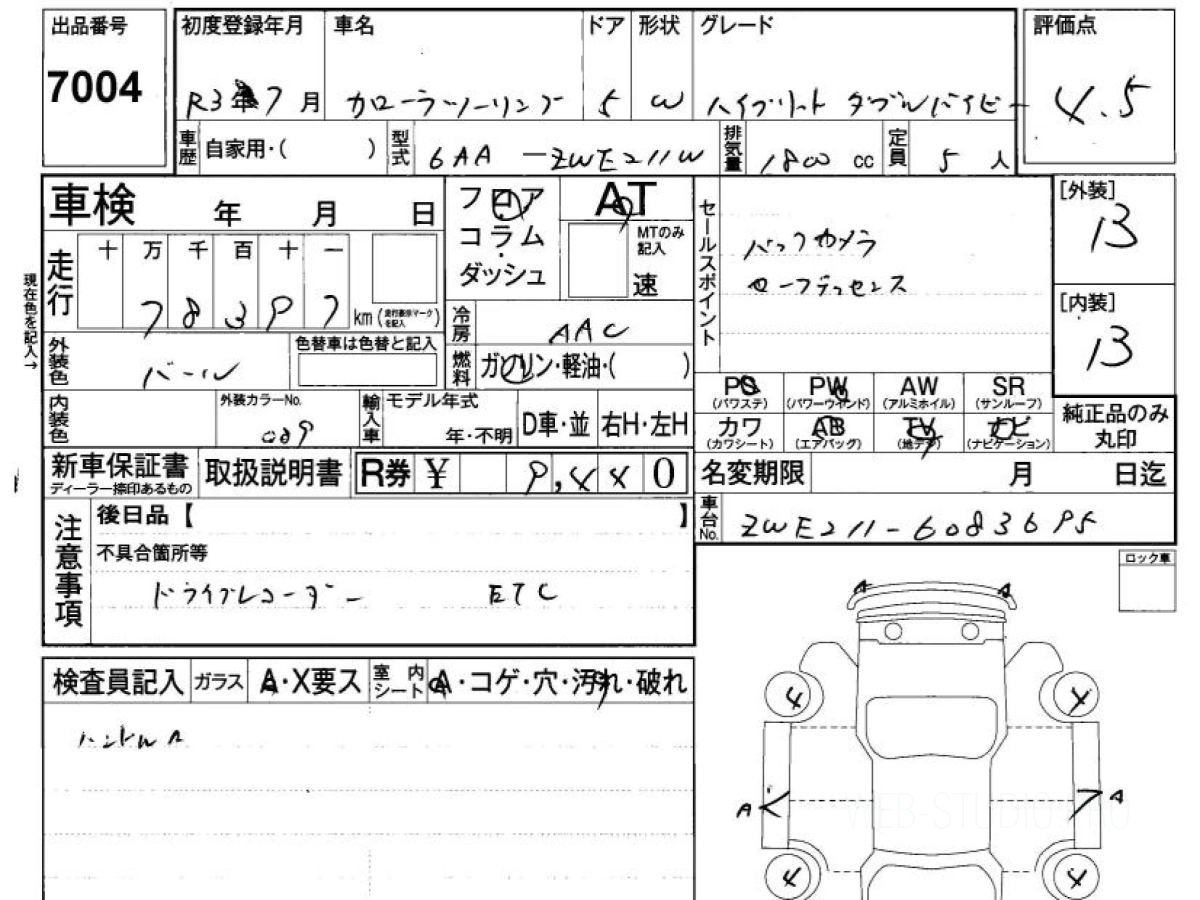 出品番号 初度登録年月 車名 ドア 形状 グレード 評価点
7004 R3年7月 カローラツーリング 5 W ハイブリット ダブルバイビー 4.5
車歴 自家用・( ) 型式 6AA-ZWE211W 排気量 1800 cc 定員 5 人
車検 年 月 日
フロア AT
コラム MTのみ記入
ダッシュ 速
セールスポイント
バックカメラ
[外装]
13
[内装]
13
現在色を記入→
走行 十 万 千 百 十 一
78397 km (走行表示マークを記入)
冷房 AAC
外装色 パール 色替車は色替と記入
燃料 ガソリン・軽油・( )
PS (パワステ) PW (パワーウインド) AW (アルミホイル) SR (サンルーフ)
カワ (カワシート) AB (エアバッグ) TV (地デジ) ナビ (ナビゲーション)
純正品のみ丸印
内装色 外装カラーNo. 089 輸入車 モデル年式 年・不明 D車・並 右H・左H
新車保証書 ディーラー捺印あるもの 取扱説明書 R券 ¥ 9,440
名変期限 月 日迄
車台No. ZWE211-6083695
注意事項
後日品【 】
不具合箇所等
ドライブレコーダー ETC
ロック車
検査員記入 ガラス A・X要ス 室内シート A・コゲ・穴・汚れ・破れ
ハンドルA
A A
4 4
A A
4 4
WEB-STUDIO.PRO